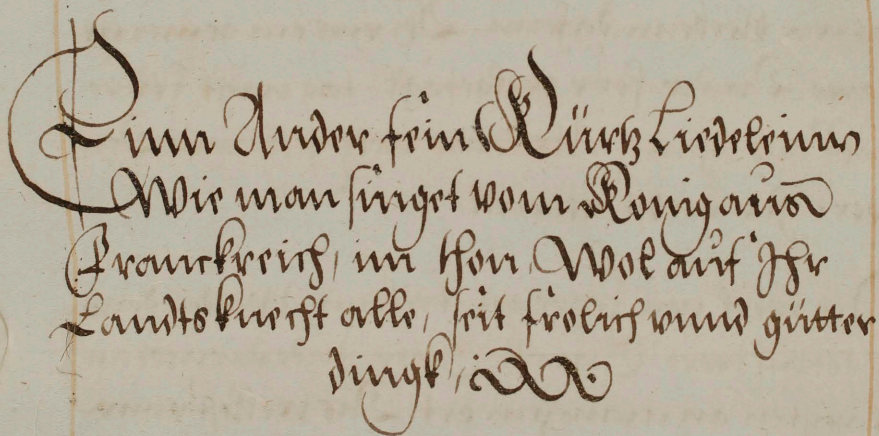 Einn Ander fein Kürtz Liedeleinn
Wie man singet vom Konig auß
Franckreich, im thon, Wol auf Ihr
Landtsknecht alle, seit frolich vnnd gutter
dingk,